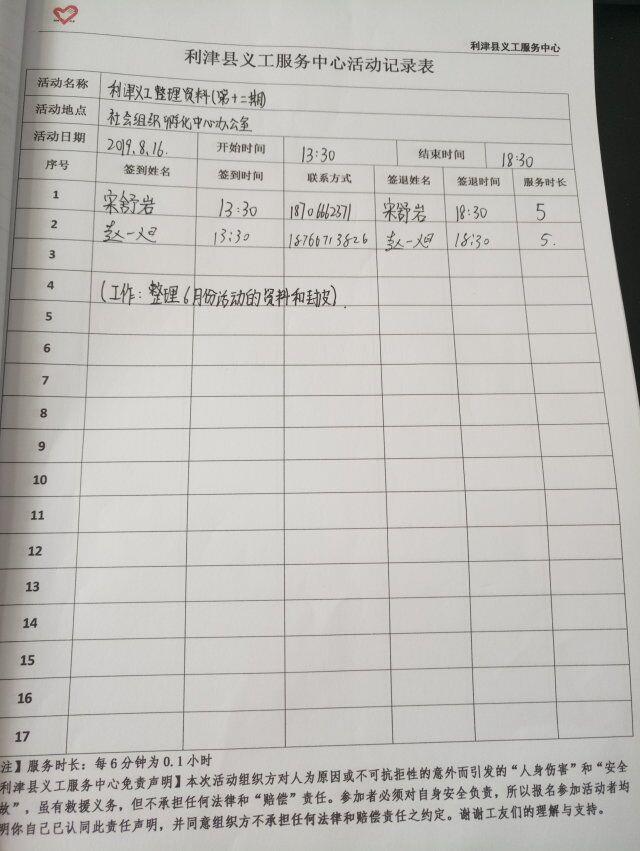 利津县义工服务中心
利津县义工服务中心活动记录表
活动名称 利津义工整理资料(第十二期)
活动地点 社会组织孵化中心办公室
活动日期 2019.8.16. 开始时间 13:30 结束时间 18:30
序号 签到姓名 签到时间 联系方式 签退姓名 签退时间 服务时长
1 宋舒岩 13:30 18706662371 宋舒岩 18:30 5
2 赵一旭 13:30 18766713826 赵一旭 18:30 5.
3
4 (工作:整理6月份活动的资料和封皮)
5
6
7
8
9
10
11
12
13
14
15
16
17
注】服务时长:每6分钟为0.1小时
利津县义工服务中心免责声明】本次活动组织方对人为原因或不可抗拒性的意外而引发的“人身伤害”和“安全
故”,虽有救援义务,但不承担任何法律和“赔偿”责任。参加者必须对自身安全负责,所以报名参加活动者均
明你自己已认同此责任声明,并同意组织方不承担任何法律和赔偿责任之约定。谢谢工友们的理解与支持。